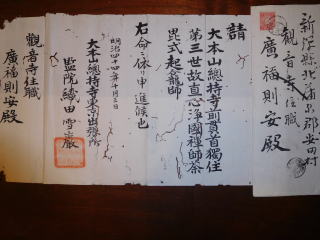 新潟縣北蒲原郡安田村
觀音寺住職
廣福則安殿
請
大本山總持寺前貫首獨住
第三世故直心淨國禪師荼
毘式起龕師
右命ニ依リ申進候也
明治四十四年十月三日
大本山總持寺東京出張所
監院 織田雪巖
觀音寺住職
廣福則安殿